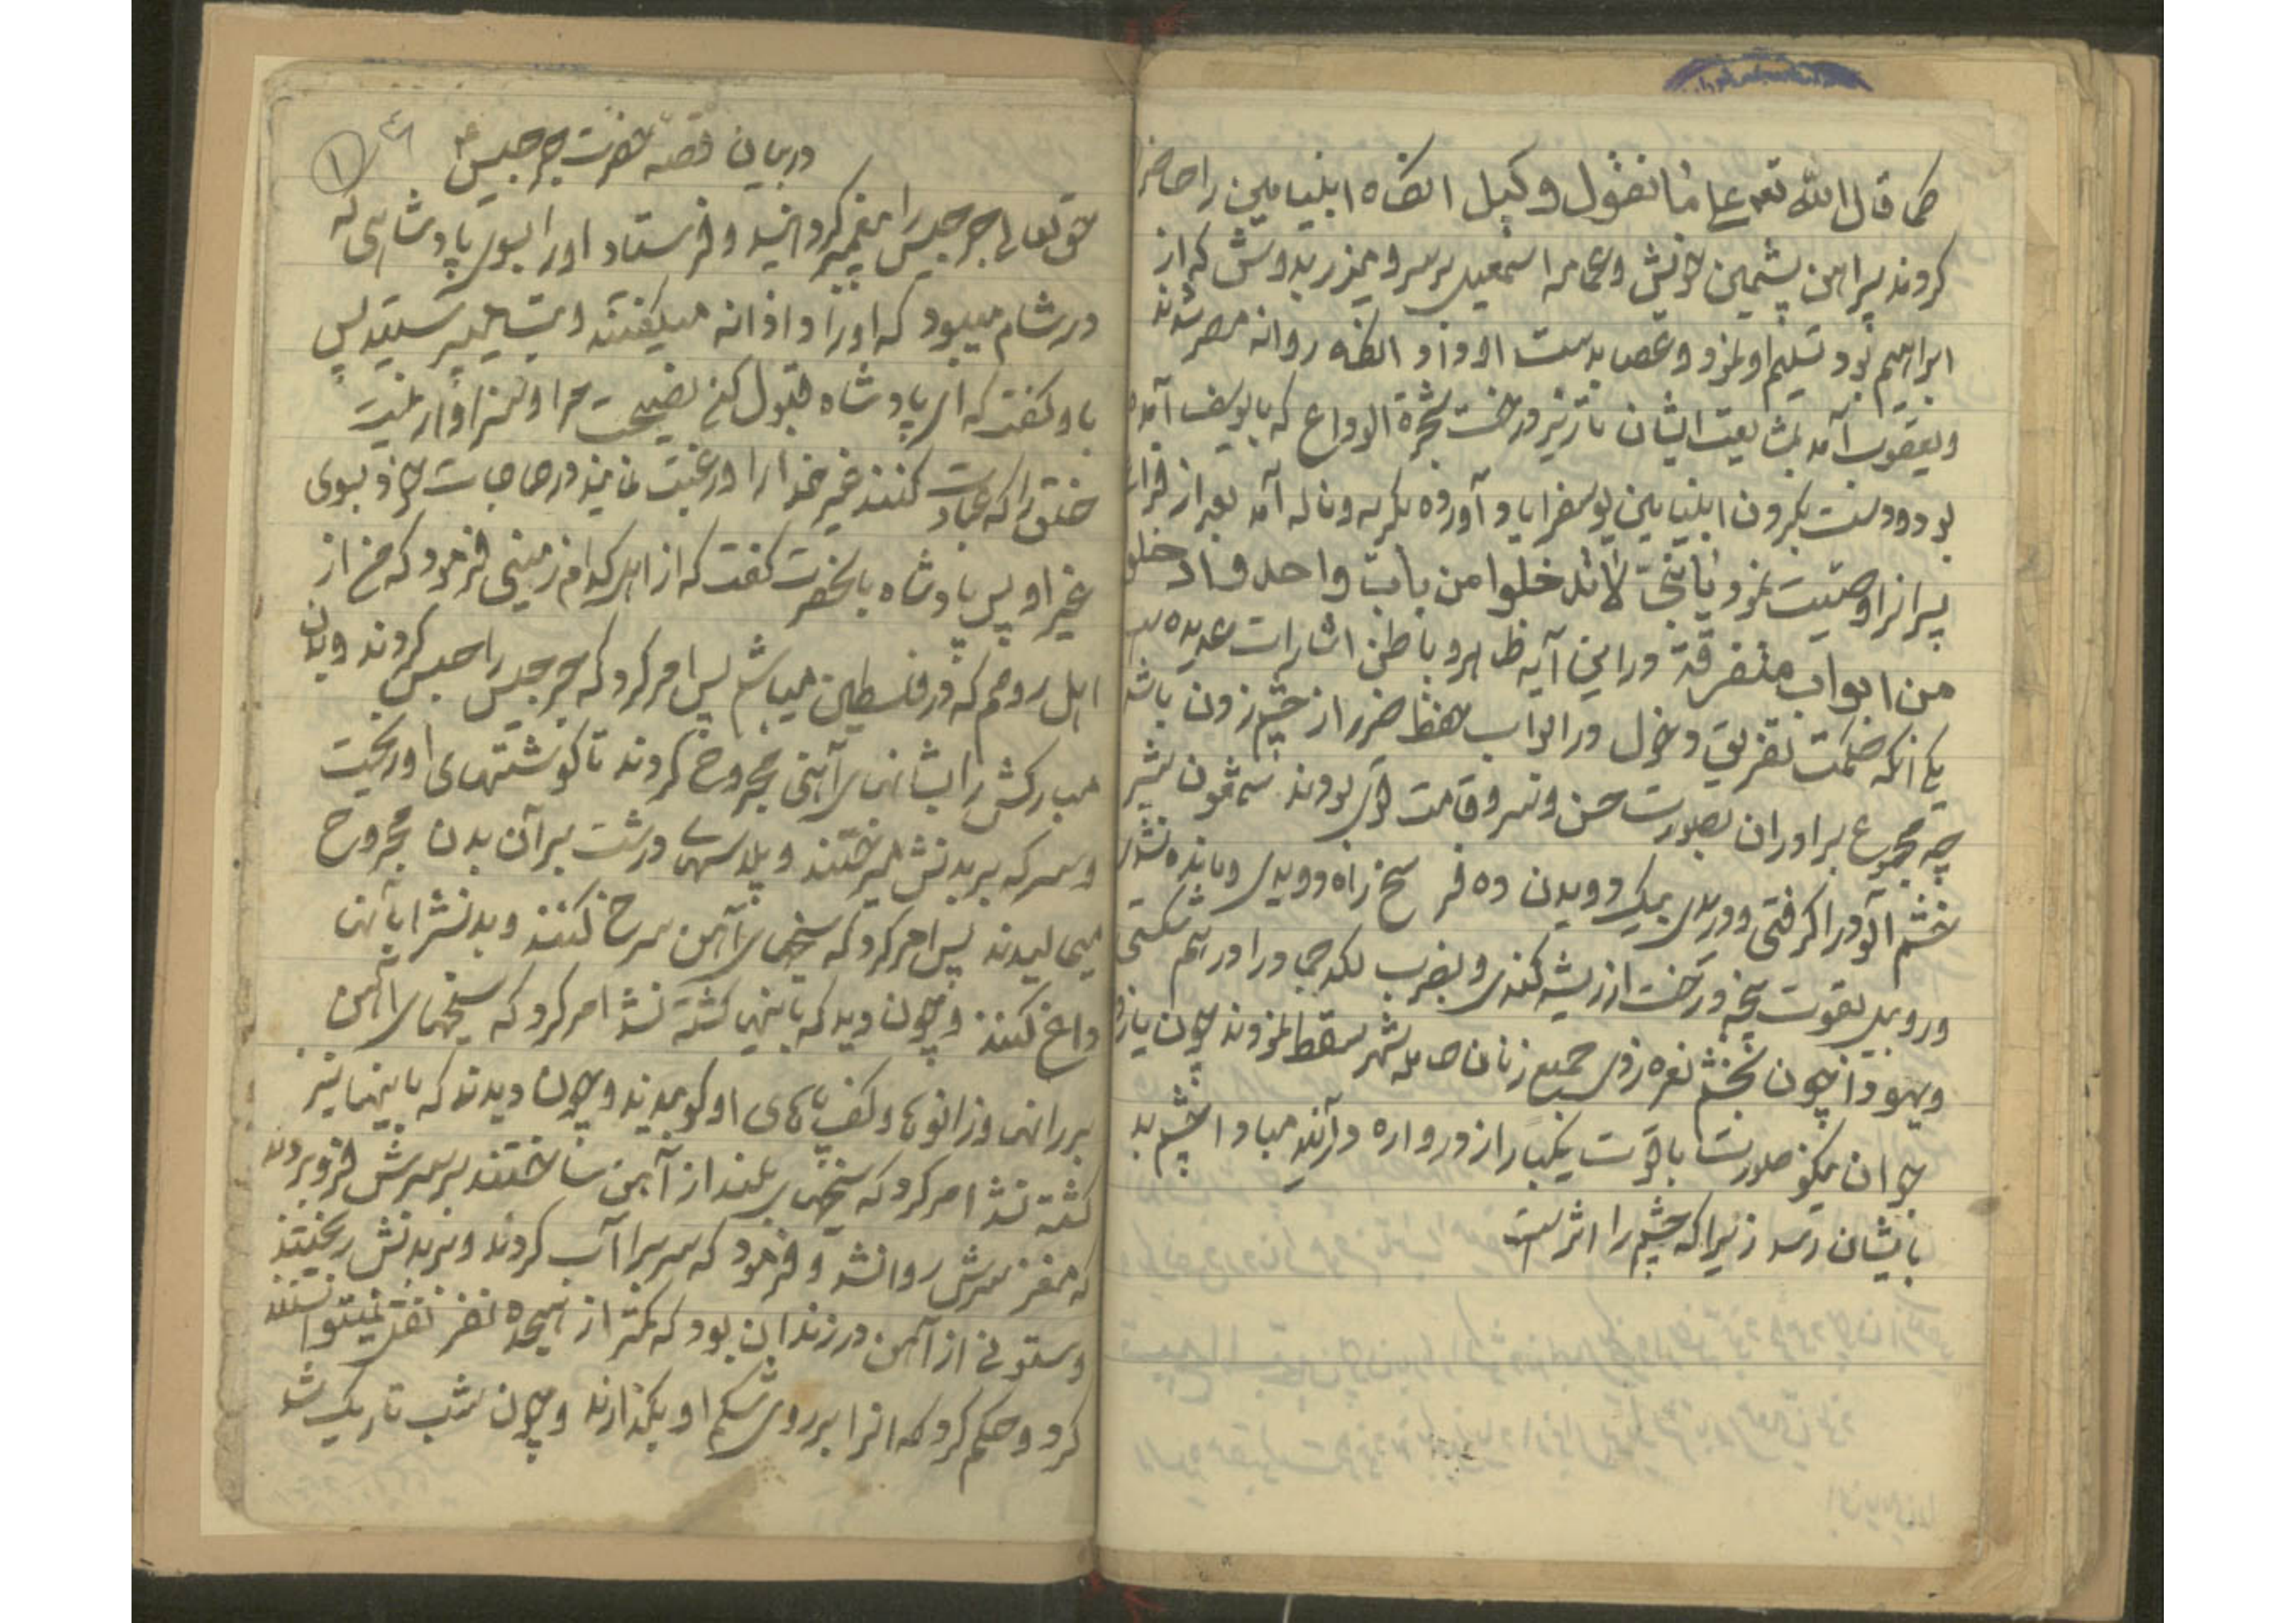 کما قال الله تعم علی ما نقول وکیل انکاه ابنیامین را حاضر
کردند پیراهن پشمین خونش و عمامه اسمعیل بر سر و میزر بدوش که از
ابراهیم بود تسلیم او نمود و عصا بدست او داد انکه روانه مصر شدند
و یعقوب آمد بمشایعت ایشان تا زیر درخت شجرة الوداع که با یوسف آمده
بود و دست بکردن ابنیامین یوسف را یاد آورده بکریه و ناله آمد بعد از فراغ
پسرانرا وصیت نمود یا بنی لا تدخلوا من باب واحد و ادخلو
من ابواب متفرقة در این آیه ظاهر و باطن اشارات عدیده
یکی انکه حکمت تفریق دخول در ابواب حفظ ضرر از چشم زدن باشد
چه مجموع برادران بصورت حسن و سرو قامت بودند شمعون شیر
خشم آلود را کرفتی و در یک دویدن ده فرسخ راه دویدی و مانده نشدی
و روبیل بقوت پنجه درخت از ریشه کندی و بضرب لکد در هم شکستی
و یهودا چون بخشم نعره زدی جمیع زنان حامله شهر سقط نمودند چون یازده
جوان نیکو صورت با قوت یکبار از دروازه درآیند مبادا چشم بد
بایشان رسد زیرا که چشم را اثر است
۱
در بیان قصه حضرت جرجیس ع
حق تعالی جرجیس را پیغمبر کردانید و فرستاد او را بسوی پادشاهی که
در شام میبود که او را داذانه میکفتند و بت میپرستید پس
باو کفت که ای پادشاه قبول کن نصیحت مرا و سزاوار نیست
خلق را که عبادت کنند غیر خدا را و رغبت نمایند در حاجات خود بسوی
غیر او پس پادشاه بانحضرت کفت که از اهل کدام زمینی فرمود که من از
اهل رومم که در فلسطین میباشم پس امر کرد که جرجیس را حبس کردند و بدن
مبارکش را بشانهای آهنی مجروح کردند تا کوشتهای او ریخت
و سرکه بر بدنش میریختند و پلاسهای درشت بر آن بدن مجروح
میمالیدند پس امر کرد که سیخهای آهن سرخ کنند و بدنشرا بآنها
داغ کنند و چون دید که باینها کشته نشد امر کرد که سیخهای آهن
بر رانها و زانوها و کف پاهای او کوبیدند و چون دیدند که باینها نیز
کشته نشد امر کرد که سیخهای بلند از آهن ساختند بر سرش فرو بردند
که مغز سرش روانشد و فرمود که سرب را آب کردند و بر بدنش ریختند
و ستونی از آهن در زندان بود که کمتر از هیجده نفر نقل نمیتوانستند
کرد و حکم کرد که انرا بر روی شکم او بکذارند و چون شب تاریک شد